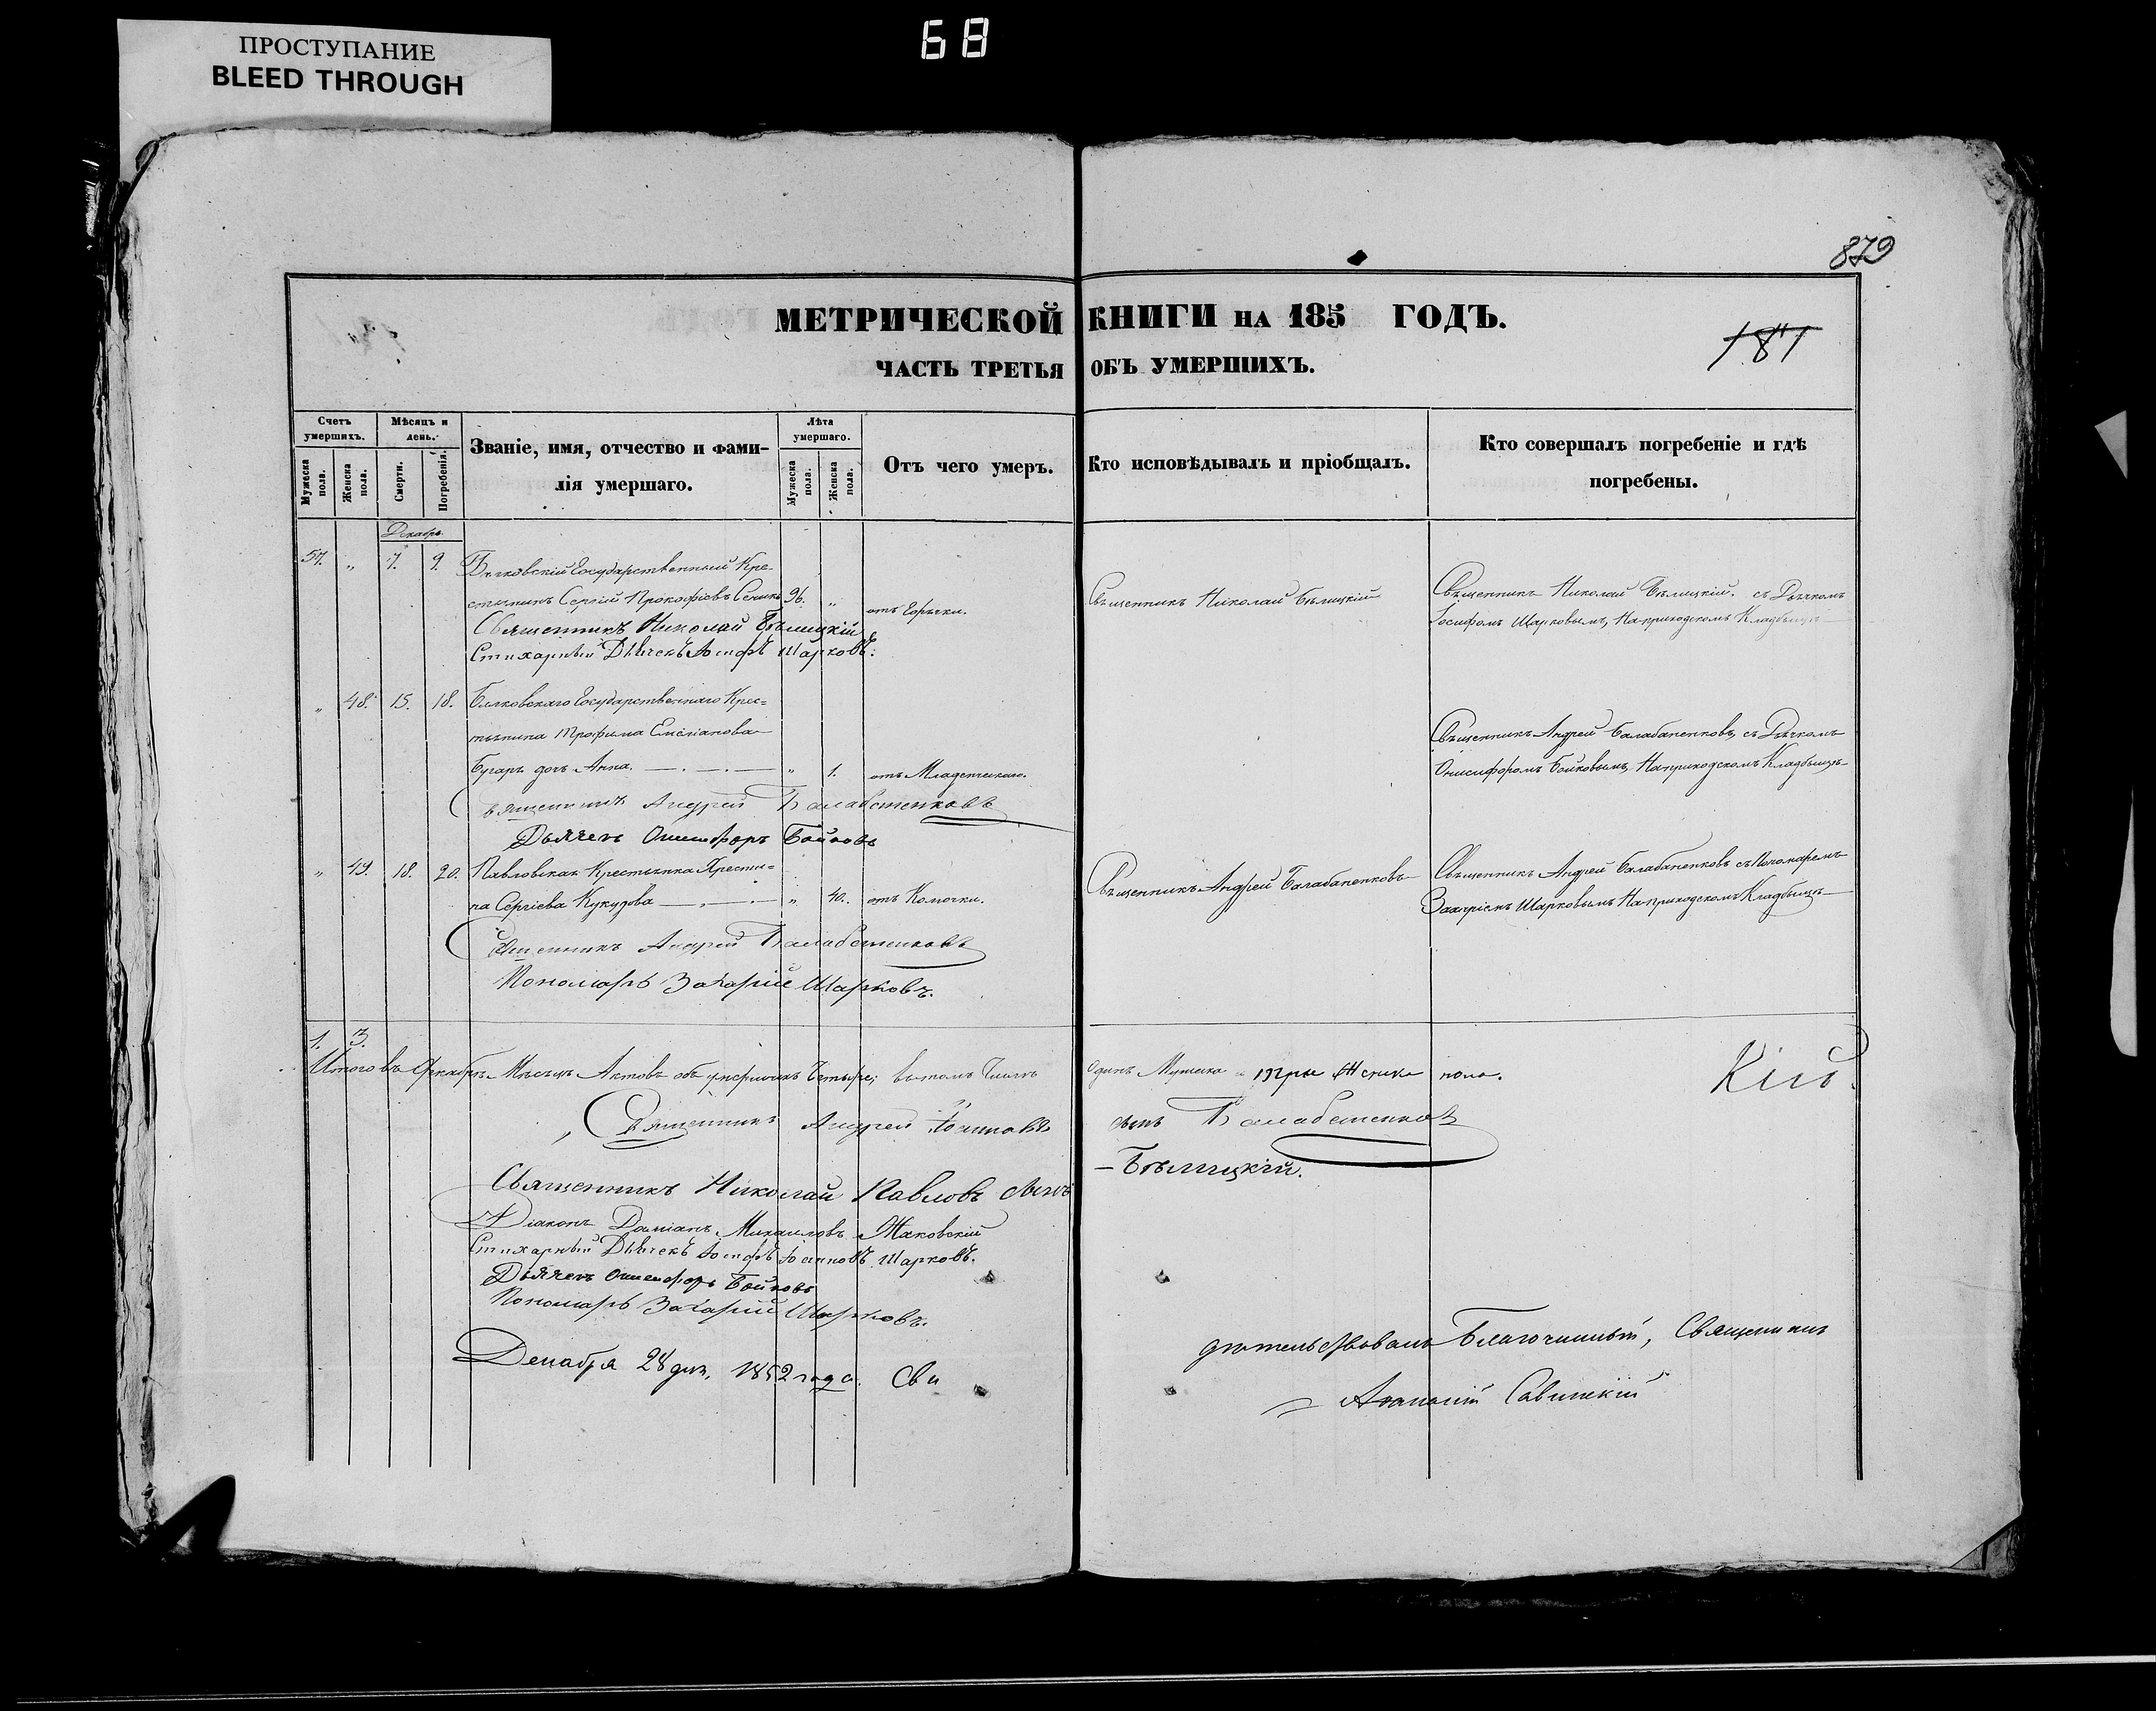 68
ПРОСТУПАНИЕ
BLEED THROUGH
879
МЕТРИЧЕСКОЙ КНИГИ НА 185 ГОДЪ.
181
ЧАСТЬ ТРЕТЬЯ ОБЪ УМЕРШИХЪ.
Счетъ умершихъ.
Мѣсяцъ и день.
Званіе, имя, отчество и фамилія умершаго.
Лѣта умершаго.
Отъ чего умеръ.
Кто исповѣдывалъ и пріобщалъ.
Кто совершалъ погребеніе и гдѣ погребены.
Мужеска пола.
Женска пола.
Смерти.
Погребенія.
Мужеска пола.
Женска пола.
Декабрь
57. " 7. 9. Государственный Кре-
стьянинъ Сергій Прокофіевъ 96. " отъ Горячки. Священникъ Николай Бѣлицкій
Священникъ Николай Бѣлицкій. съ Дьячкомъ
Іосифомъ Шарковымъ, На приходскомъ Кладбищѣ
Священникъ Николай Бѣлицкій
Стихарный Дьячекъ Іосифъ Шарковъ.
" 48. 15. 18. Государственнаго Крес=
тьянина Трофима Емеліанова
Бугаръ дочь Анна. " 1. отъ Младенческаго.
Священникъ Андрей Балабаненковъ, съ Дьячкомъ
Онисифоромъ Бойковымъ, На приходскомъ Кладбищѣ
Священникъ Андрей Балабаненковъ
Дьячекъ Онисифоръ Бойковъ
" 49. 18. 20. Павловская Крестьянка Хрести=
на Сергіева Кукудова " 40. отъ Колючки.
Священникъ Андрей Балабаненковъ
Священникъ Андрей Балабаненковъ съ Пономаремъ
Захаріемъ Шарковымъ На приходскомъ Кладбищѣ
Священникъ Андрей Балабаненковъ
Пономарь Захарій Шарковъ.
1. 3.
Итого въ Декабрѣ Мѣсяцѣ Актовъ объ умершихъ Четыре; въ томъ Числѣ Одинъ Мужеска три Женска пола.
Кій.
Священникъ Андрей Іоанновъ сынъ Балабаненковъ
Священникъ Николай Павловъ сынъ Бѣлицкій.
Діаконъ Даміанъ Михаиловъ Маковскій
Стихарный Дьячекъ Іосифъ Іоанновъ Шарковъ.
Дьячекъ Онисифоръ Бойковъ
Пономарь Захарій Шарковъ.
Декабря 28 дня, 1852 года. Сви дѣтельствовалъ Благочинный, Священникъ
Савинскій